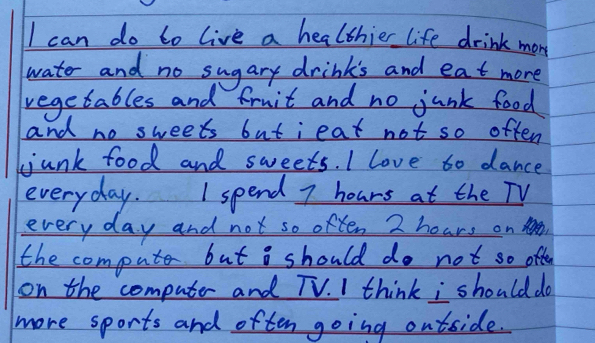 I can do to live a healthier life drink more
water and no sugary drink's and eat more
vegetables and fruit and no junk food
and no sweets but i eat not so often
junk food and sweets. I love to dance
everyday. I spend 1 hours at the TV
every day and not so often 2 hours on
the computo but i should do not so often
on the computer and TV. I think i should do
more sports and often going outside.